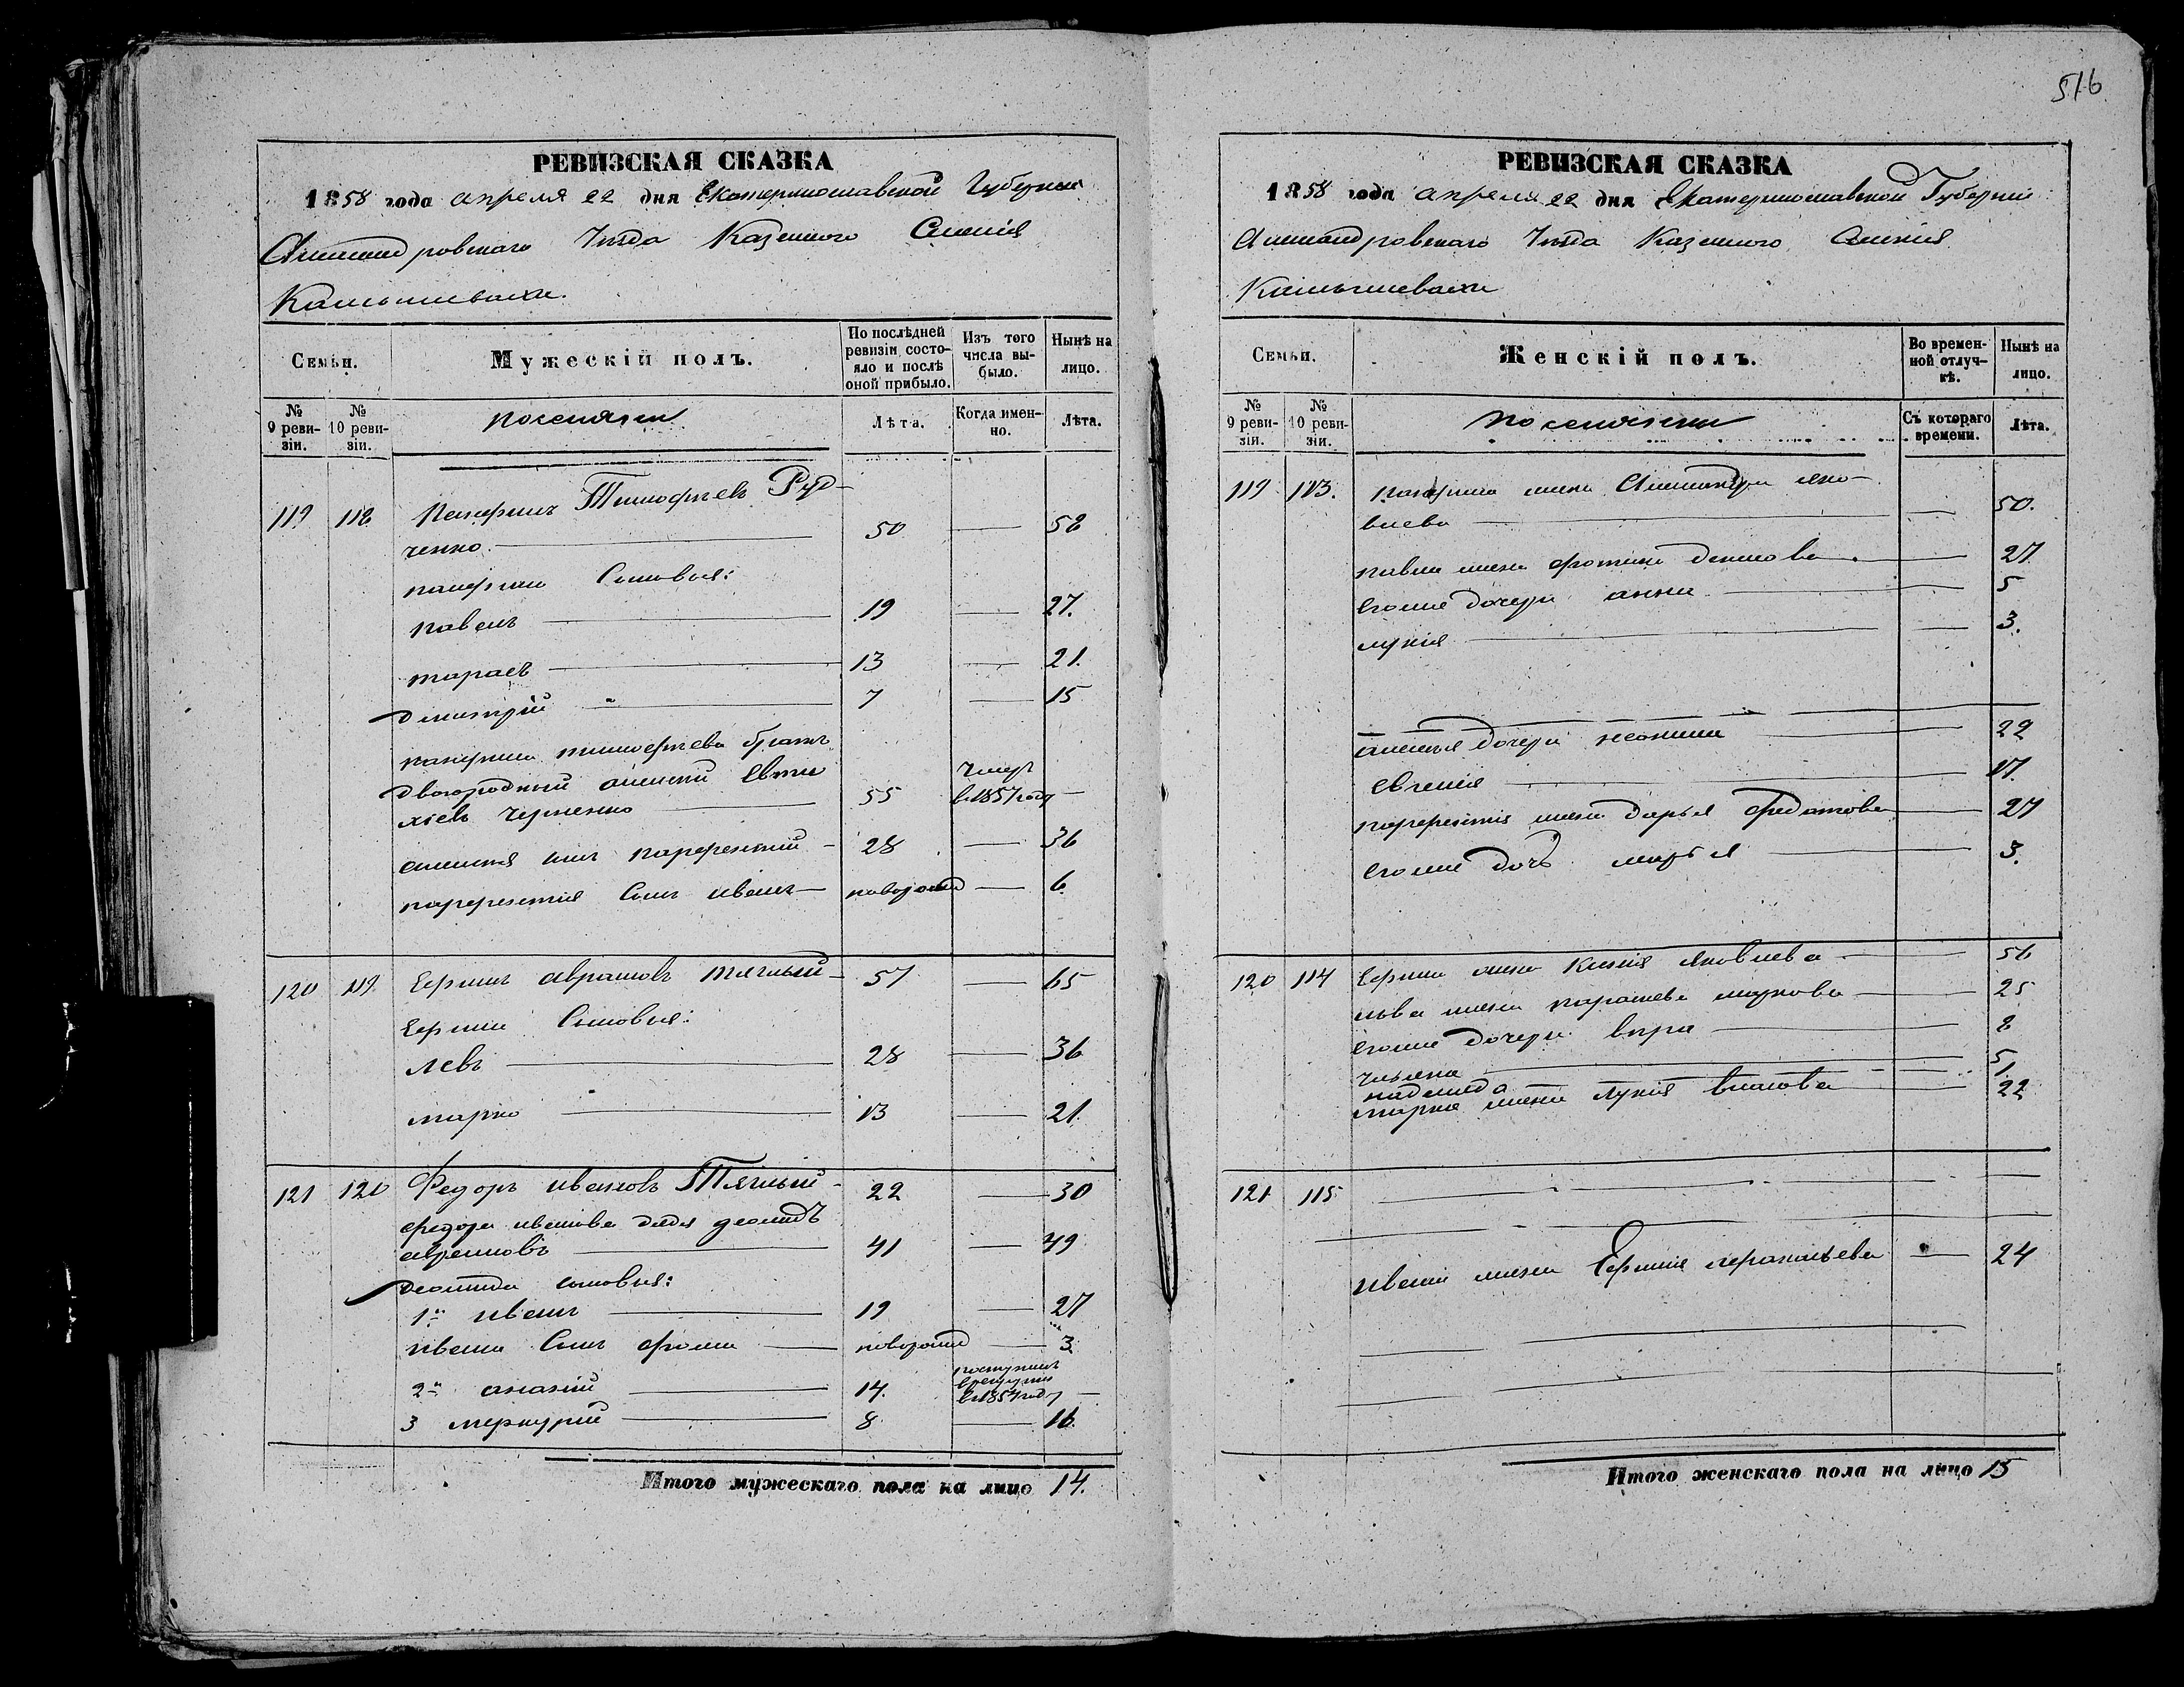 516
РЕВИЗСКАЯ СКАЗКА
1858 года апреля 22 дня Екатеринославской Губернии
Александровскаго Уезда Казенного Селения
Камышевахи.
Семьи.
Мужескій полъ.
По послѣдней ревизіи состояло и послѣ оной прибыло.
Изъ того числа выбыло.
Нынѣ на лицо.
№ 9 ревизіи.
№ 10 ревизіи.
поселяне
Лѣта.
Когда именно.
Лѣта.
119 118 Панфилъ Тимофеевъ Руд-
ченко. 50 — 58
панфила Сыновья:
павелъ 19 — 27.
тарасъ 13 — 21.
димитрій 7 — 15
панфила тимофеева братъ
двоюродный алексей Евти
хіевъ 55 умер в 1857 году —
алексея сынъ парфентий 28 — 36
парфентия Сынъ иванъ новорожд — 6
120 119 Ефимъ Абрамовъ тяглый 57 — 65
Ефима Сыновья:
Левъ 28 — 36
марко 13 — 21.
121 120 Федоръ ивановъ Тяглый 22 — 30
федора иванова дядя деомидъ
абрамовъ 41 — 49
деомида сыновья:
1й иванъ 19 — 27
ивана Сынъ фома новорожд — 3
2й ананій 14. поступилъ в рекруты в 1854 году —
3 меркурий 8 — 16.
Итого мужескаго пола на лицо 14.
РЕВИЗСКАЯ СКАЗКА
1858 года апреля 22 дня Екатеринославской Губернии
Александровскаго Уезда Казенного Селения
Камышевахи
Семьи.
Женскій полъ.
Во временной отлучкѣ.
Нынѣ на лицо.
№ 9 ревизіи.
№ 10 ревизіи.
поселянки
Съ котораго времени.
Лѣта.
119 113. панфила жена Александра яко-
влева — 50.
павла жена фотина — 27
егоже дочери анна — 5
лукия — 3.
алексея дочери 22
евгения 17.
парфентия жена дарья федотова — 27
егоже дочь марья 3.
120 114 Ефима жена яковлева — 56
льва жена параскева маркова — 25
егоже дочери вера — 8
ульяна 5
надежда 1
марка жена лукия власова — 22
121 115
ивана жена Ефимия — 24
Итого женскаго пола на лицо 15